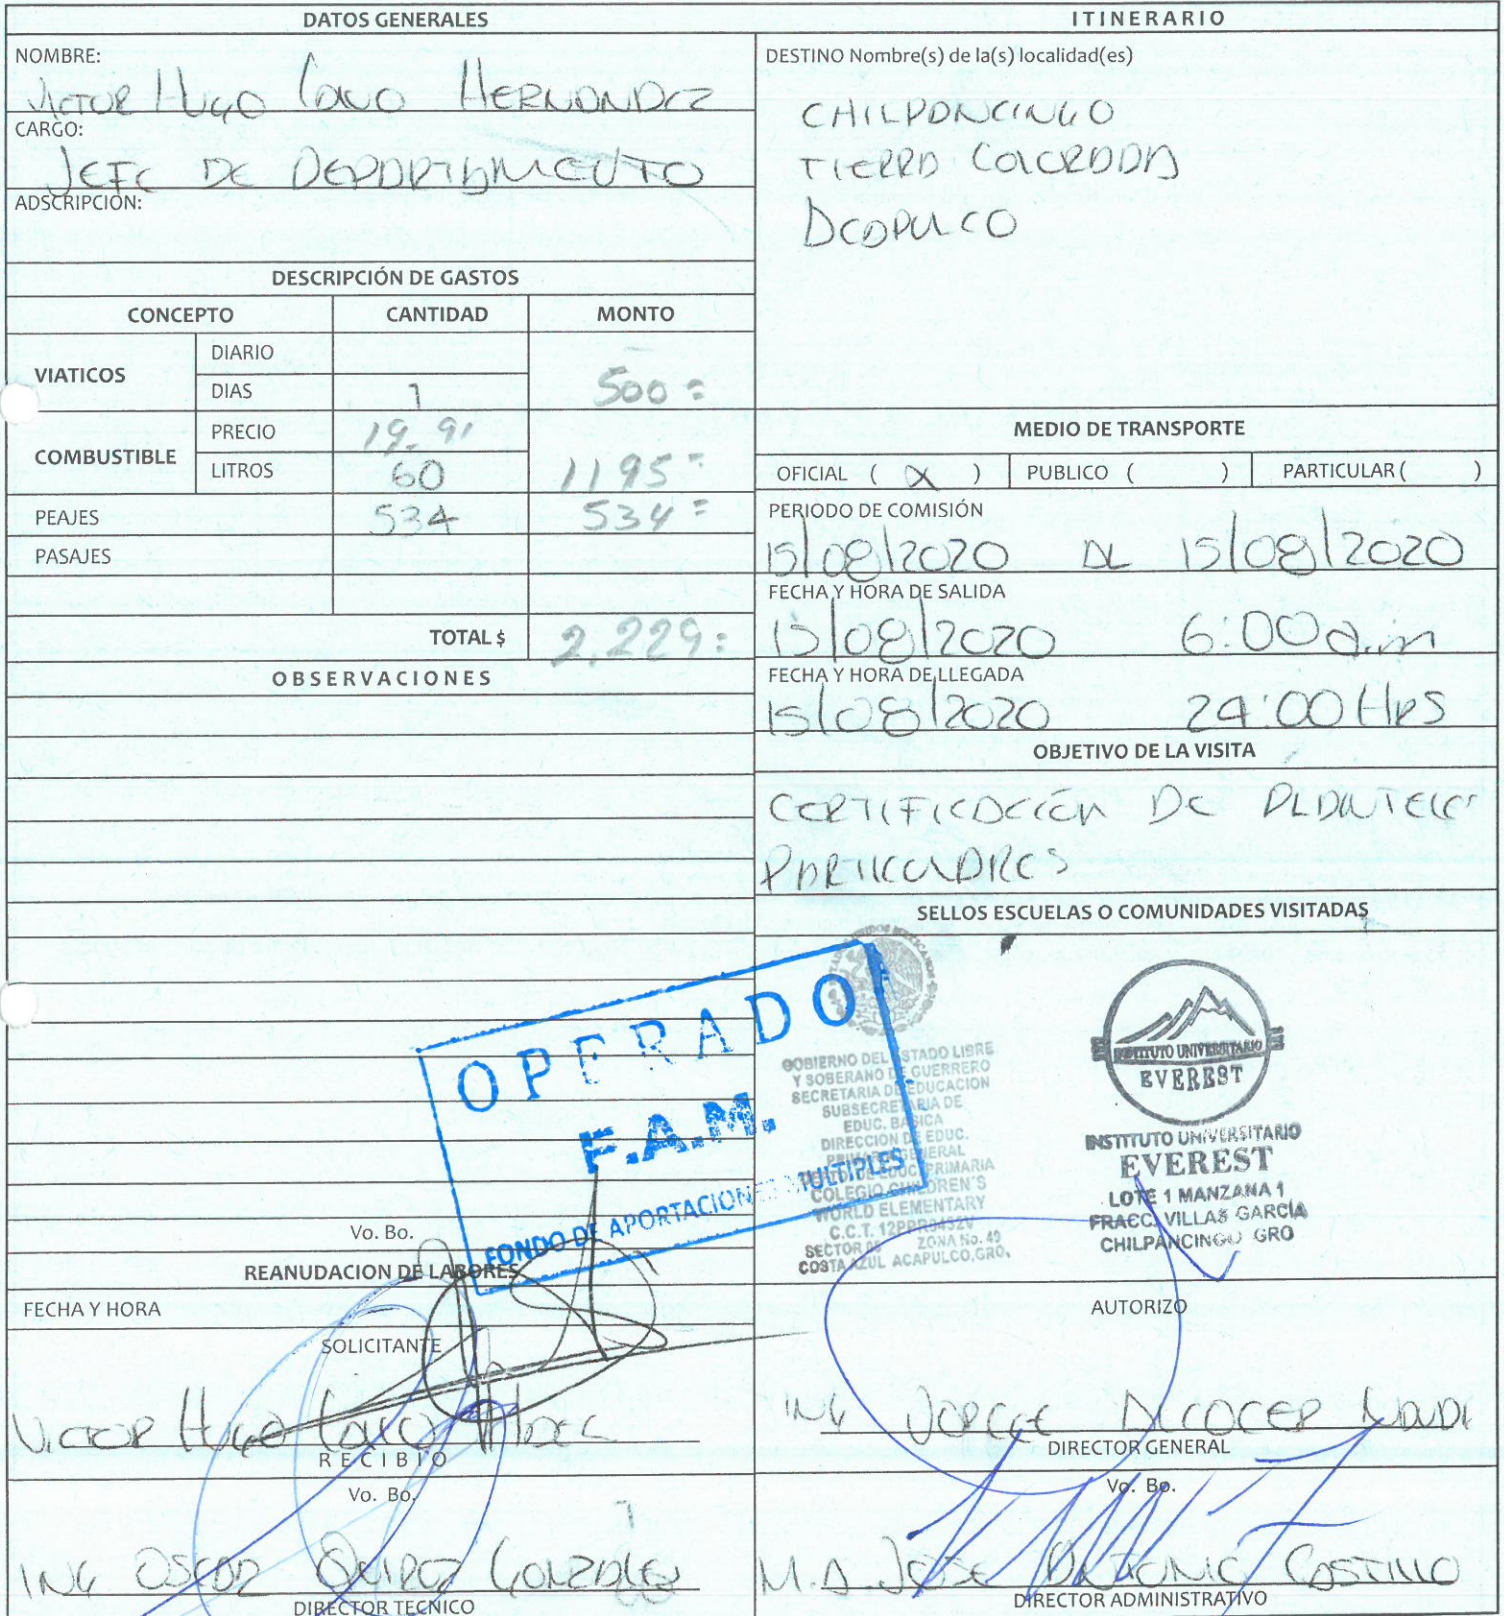 DATOS GENERALES
NOMBRE:
VICTOR HUGO CANO HERNANDEZ
CARGO:
JEFE DE DEPARTAMENTO
ADSCRIPCIÓN:
DESCRIPCIÓN DE GASTOS
CONCEPTO CANTIDAD MONTO
VIATICOS
DIARIO
DIAS 1 500=
COMBUSTIBLE
PRECIO 19.91
LITROS 60 1195=
PEAJES 534 534=
PASAJES
TOTAL $ 2,229=
OBSERVACIONES
Vo. Bo.
REANUDACION DE LABORES
FECHA Y HORA
SOLICITANTE
VICTOR HUGO
RECIBIO
Vo. Bo.
ING OSCAR QUIROZ GONZALEZ
DIRECTOR TECNICO
ITINERARIO
DESTINO Nombre(s) de la(s) localidad(es)
CHILPANCINGO
TIERRA COLORADA
ACAPULCO
MEDIO DE TRANSPORTE
OFICIAL ( X ) PUBLICO ( ) PARTICULAR ( )
PERIODO DE COMISIÓN
15/08/2020 AL 15/08/2020
FECHA Y HORA DE SALIDA
15/08/2020 6:00 a.m
FECHA Y HORA DE LLEGADA
15/08/2020 24:00 HRS
OBJETIVO DE LA VISITA
CERTIFICACIÓN DE PLANTELES
PARTICULARES
SELLOS ESCUELAS O COMUNIDADES VISITADAS
OPERADO
F.A.M.
FONDO DE APORTACIONES MULTIPLES
GOBIERNO DEL ESTADO LIBRE
Y SOBERANO DE GUERRERO
SECRETARIA DE EDUCACION
SUBSECRETARIA DE
EDUC. BASICA
DIRECCION DE EDUC.
PRIMARIA GENERAL
DEPTO. DE EDUC. PRIMARIA
COLEGIO CHILDREN'S
WORLD ELEMENTARY
C.C.T. 12PPR0432V
SECTOR ZONA No. 49
COSTA AZUL ACAPULCO, GRO.
INSTITUTO UNIVERSITARIO
EVEREST
INSTITUTO UNIVERSITARIO
EVEREST
LOTE 1 MANZANA 1
FRACC. VILLAS GARCÍA
CHILPANCINGO GRO
AUTORIZO
ING JORGE ALCOCER
DIRECTOR GENERAL
Vo. Bo.
M.A. JOSE ANTONIO CASTILLO
DIRECTOR ADMINISTRATIVO